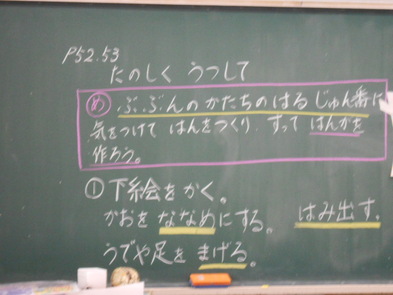 P52.53
たのしく うつして
め ぶぶんのかたちのはるじゅん番に
気をつけて はんをつくり、すって はんがを
作ろう。
① 下絵をかく。
かおを ななめにする。 はみ出す。
うでや足を まげる。